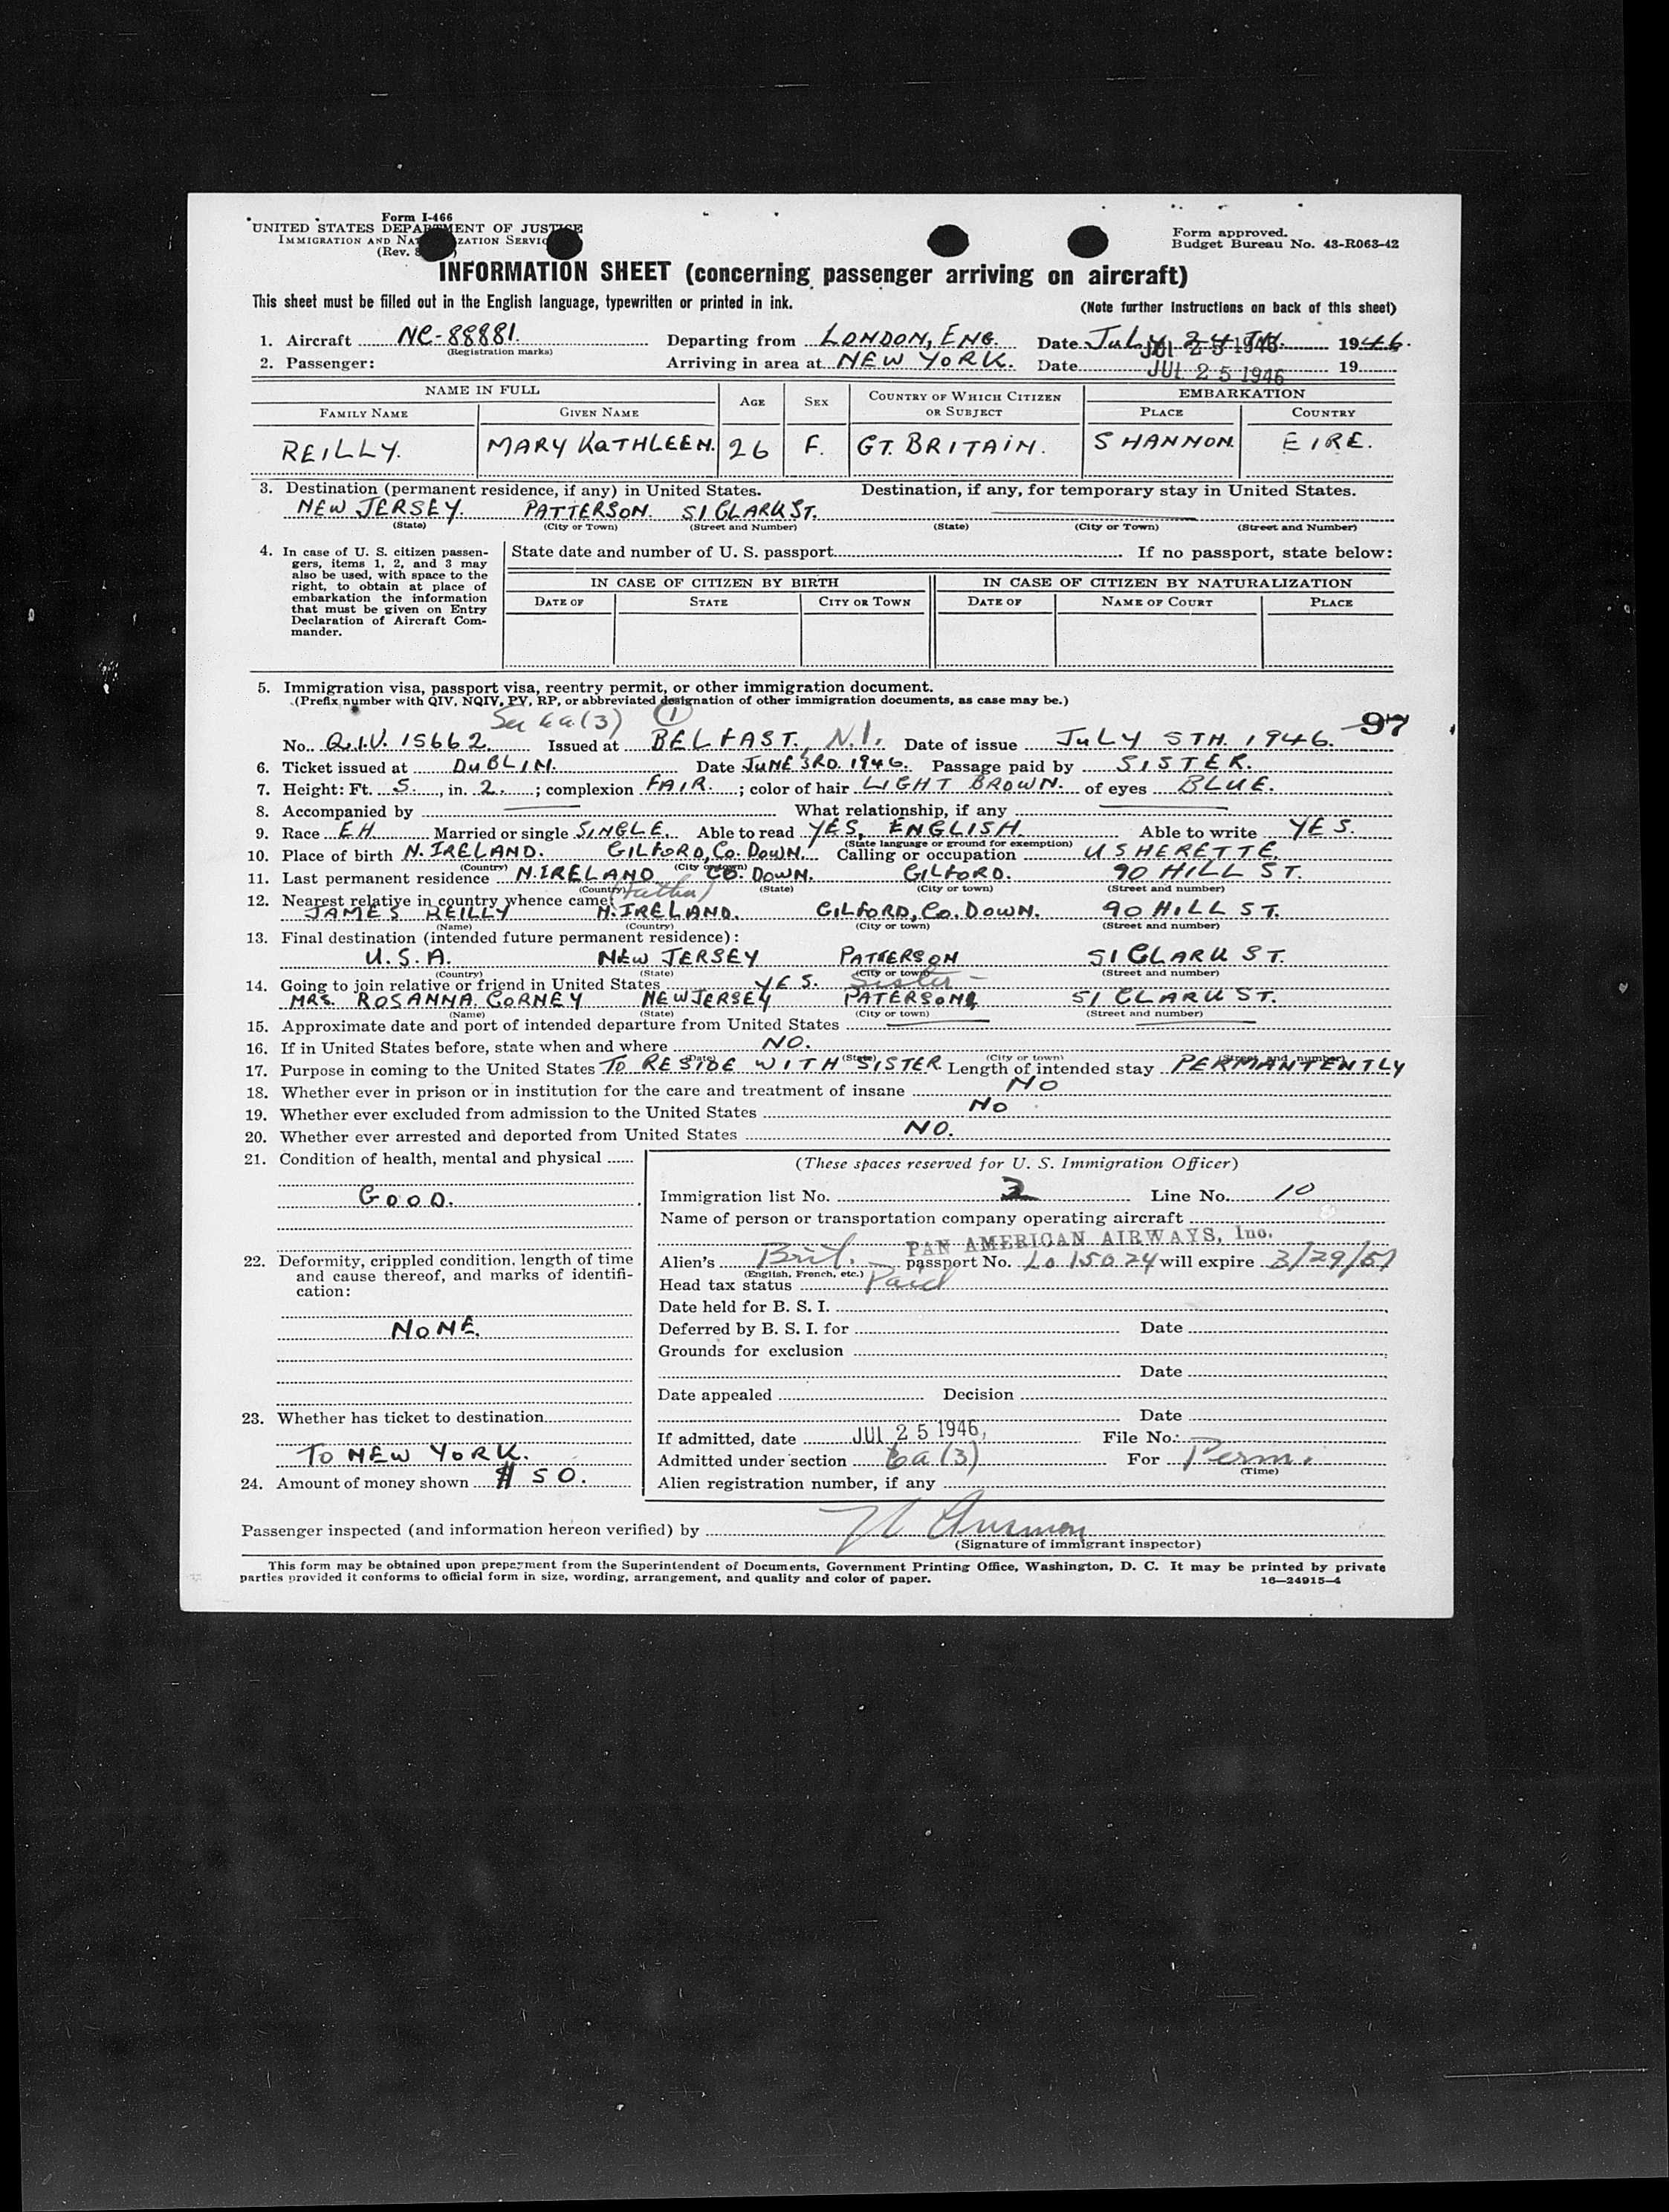 Form I-466
UNITED STATES DEPARTMENT OF JUSTICE
IMMIGRATION AND NATURALIZATION SERVICE
(Rev.
Form approved.
Budget Bureau No. 43-R063-42
INFORMATION SHEET (concerning passenger arriving on aircraft)
This sheet must be filled out in the English language, typewritten or printed in ink.
(Note further instructions on back of this sheet)
1. Aircraft NC-88881. Departing from LONDON, ENG. Date July 24TH. 1946.
(Registration marks)
JUL 25 1946
2. Passenger: Arriving in area at NEW YORK. Date JUL 25 1946 19
NAME IN FULL AGE SEX COUNTRY OF WHICH CITIZEN OR SUBJECT EMBARKATION
FAMILY NAME GIVEN NAME PLACE COUNTRY
REILLY. MARY KATHLEEN. 26 F. GT. BRITAIN. SHANNON. EIRE.
3. Destination (permanent residence, if any) in United States. Destination, if any, for temporary stay in United States.
NEW JERSEY. PATTERSON. 51 CLARK ST.
(State) (City or Town) (Street and Number) (State) (City or Town) (Street and Number)
4. In case of U. S. citizen passengers, items 1, 2, and 3 may also be used, with space to the right, to obtain at place of embarkation the information that must be given on Entry Declaration of Aircraft Commander.
State date and number of U. S. passport If no passport, state below:
IN CASE OF CITIZEN BY BIRTH IN CASE OF CITIZEN BY NATURALIZATION
DATE OF STATE CITY OR TOWN DATE OF NAME OF COURT PLACE
5. Immigration visa, passport visa, reentry permit, or other immigration document.
(Prefix number with QIV, NQIV, PV, RP, or abbreviated designation of other immigration documents, as case may be.)
Sec 6a(3) 1
97
No. Q.I.V. 15662. Issued at BELFAST., N.I. Date of issue JULY 5TH. 1946.
6. Ticket issued at DUBLIN. Date JUNE 3RD. 1946. Passage paid by SISTER.
7. Height: Ft. 5., in. 2. ; complexion FAIR. ; color of hair LIGHT BROWN. of eyes BLUE.
8. Accompanied by What relationship, if any
9. Race EH Married or single SINGLE. Able to read YES, ENGLISH Able to write YES.
(State language or ground for exemption)
10. Place of birth N. IRELAND. GILFORD, CO. DOWN. Calling or occupation USHERETTE.
(Country) (City or town)
11. Last permanent residence N. IRELAND CO. DOWN. GILFORD. 90 HILL ST.
(Country) (State) (City or town) (Street and number)
12. Nearest relative in country whence came: (Father)
JAMES REILLY N. IRELAND. GILFORD, CO. DOWN. 90 HILL ST.
(Name) (Country) (City or town) (Street and number)
13. Final destination (intended future permanent residence):
U.S.A. NEW JERSEY PATTERSON 51 CLARK ST.
(Country) (State) (City or town) (Street and number)
14. Going to join relative or friend in United States YES. Sister
MRS. ROSANNA CORNEY NEW JERSEY PATERSON 51 CLARK ST.
(Name) (State) (City or town) (Street and number)
15. Approximate date and port of intended departure from United States
16. If in United States before, state when and where NO.
(Date) (State) (City or town) (Street and number)
17. Purpose in coming to the United States TO RESIDE WITH SISTER Length of intended stay PERMANTENTLY
18. Whether ever in prison or in institution for the care and treatment of insane NO
19. Whether ever excluded from admission to the United States NO
20. Whether ever arrested and deported from United States NO.
21. Condition of health, mental and physical
GOOD.
22. Deformity, crippled condition, length of time
and cause thereof, and marks of identifi-
cation:
NONE.
23. Whether has ticket to destination
TO NEW YORK.
24. Amount of money shown $ 50.
(These spaces reserved for U. S. Immigration Officer)
Immigration list No. 2 Line No. 10
Name of person or transportation company operating aircraft
PAN AMERICAN AIRWAYS, Inc.
Alien's Brit. passport No. Lo 15024 will expire 3/29/51
(English, French, etc.)
Head tax status Paid
Date held for B. S. I.
Deferred by B. S. I. for Date
Grounds for exclusion
Date
Date appealed Decision
Date
If admitted, date JUL 25 1946, File No.:
Admitted under section 6a(3) For Perm.
(Time)
Alien registration number, if any
Passenger inspected (and information hereon verified) by
(Signature of immigrant inspector)
This form may be obtained upon prepayment from the Superintendent of Documents, Government Printing Office, Washington, D. C. It may be printed by private
parties provided it conforms to official form in size, wording, arrangement, and quality and color of paper. 16—24915-4